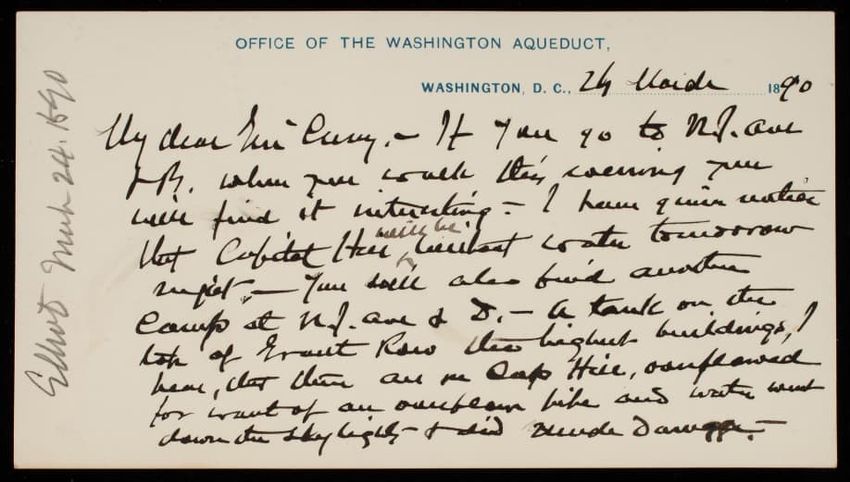 OFFICE OF THE WASHINGTON AQUEDUCT,
WASHINGTON, D. C., 24 March 1890
My dear Gen'l Casey, - If you go to N.J. ave
& B. when you walk this evening you
will find it interesting - I have given notice
that Capitol Hill will be without water tomorrow
night, - You will also find another
camp at N.J. ave & D. - A tank on the
top of Grant Row the highest buildings, I
hear, that there are on Cap Hill, overflowed
for want of an overflow pipe and water went
down the skylights & did much damage. -
Elliot Mch 24. 1890